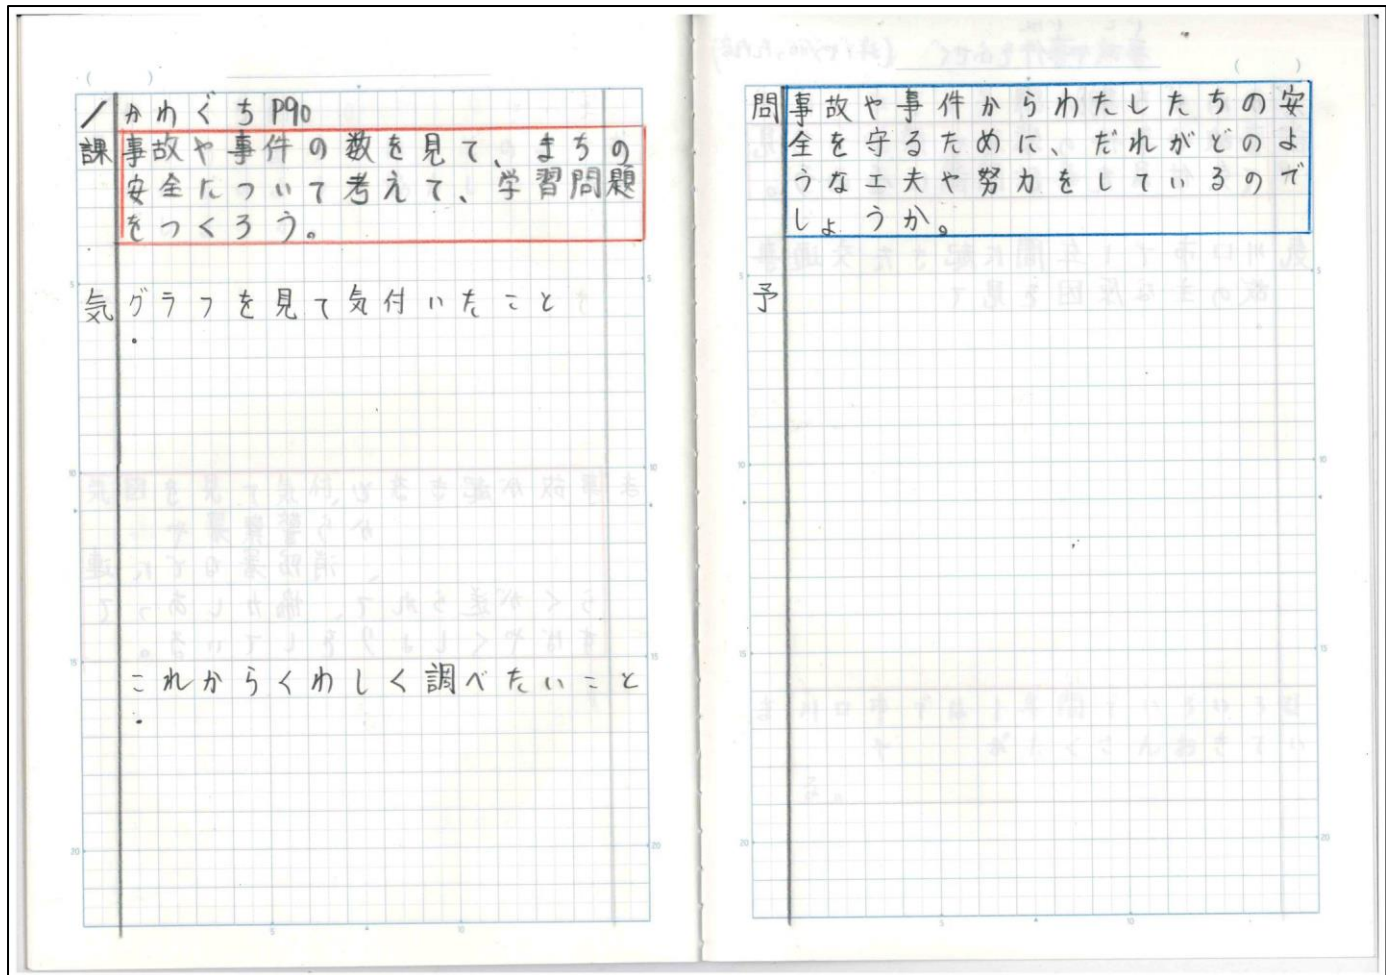 / かわぐち P90
課 事故や事件の数を見て、まちの
安全について考えて、学習問題
をつくろう。
気 グラフを見て気付いたこと
・
これからくわしく調べたいこと
・
問 事故や事件からわたしたちの安
全を守るために、だれがどのよ
うな工夫や努力をしているので
しょうか。
予